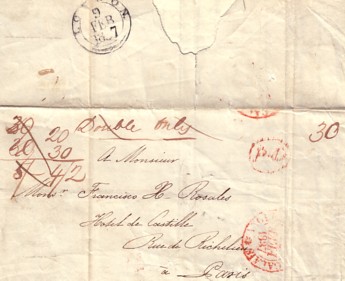 LONDON
9
FEB
1837
30 20 Double only 30
20 30
54 42
A Monsieur
Monsr Francisco H. Rosales
Hotel de Castille
Rue de Richelieu
à Paris
CALAIS